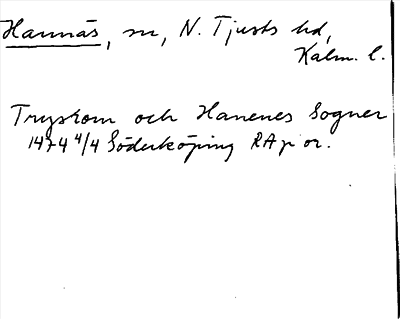 Hannäs, sn, N. Tjusts hd,
Kalm. l.
Tryskom och Hanenes Sogner
1474 4/4 Söderköping RA p or.